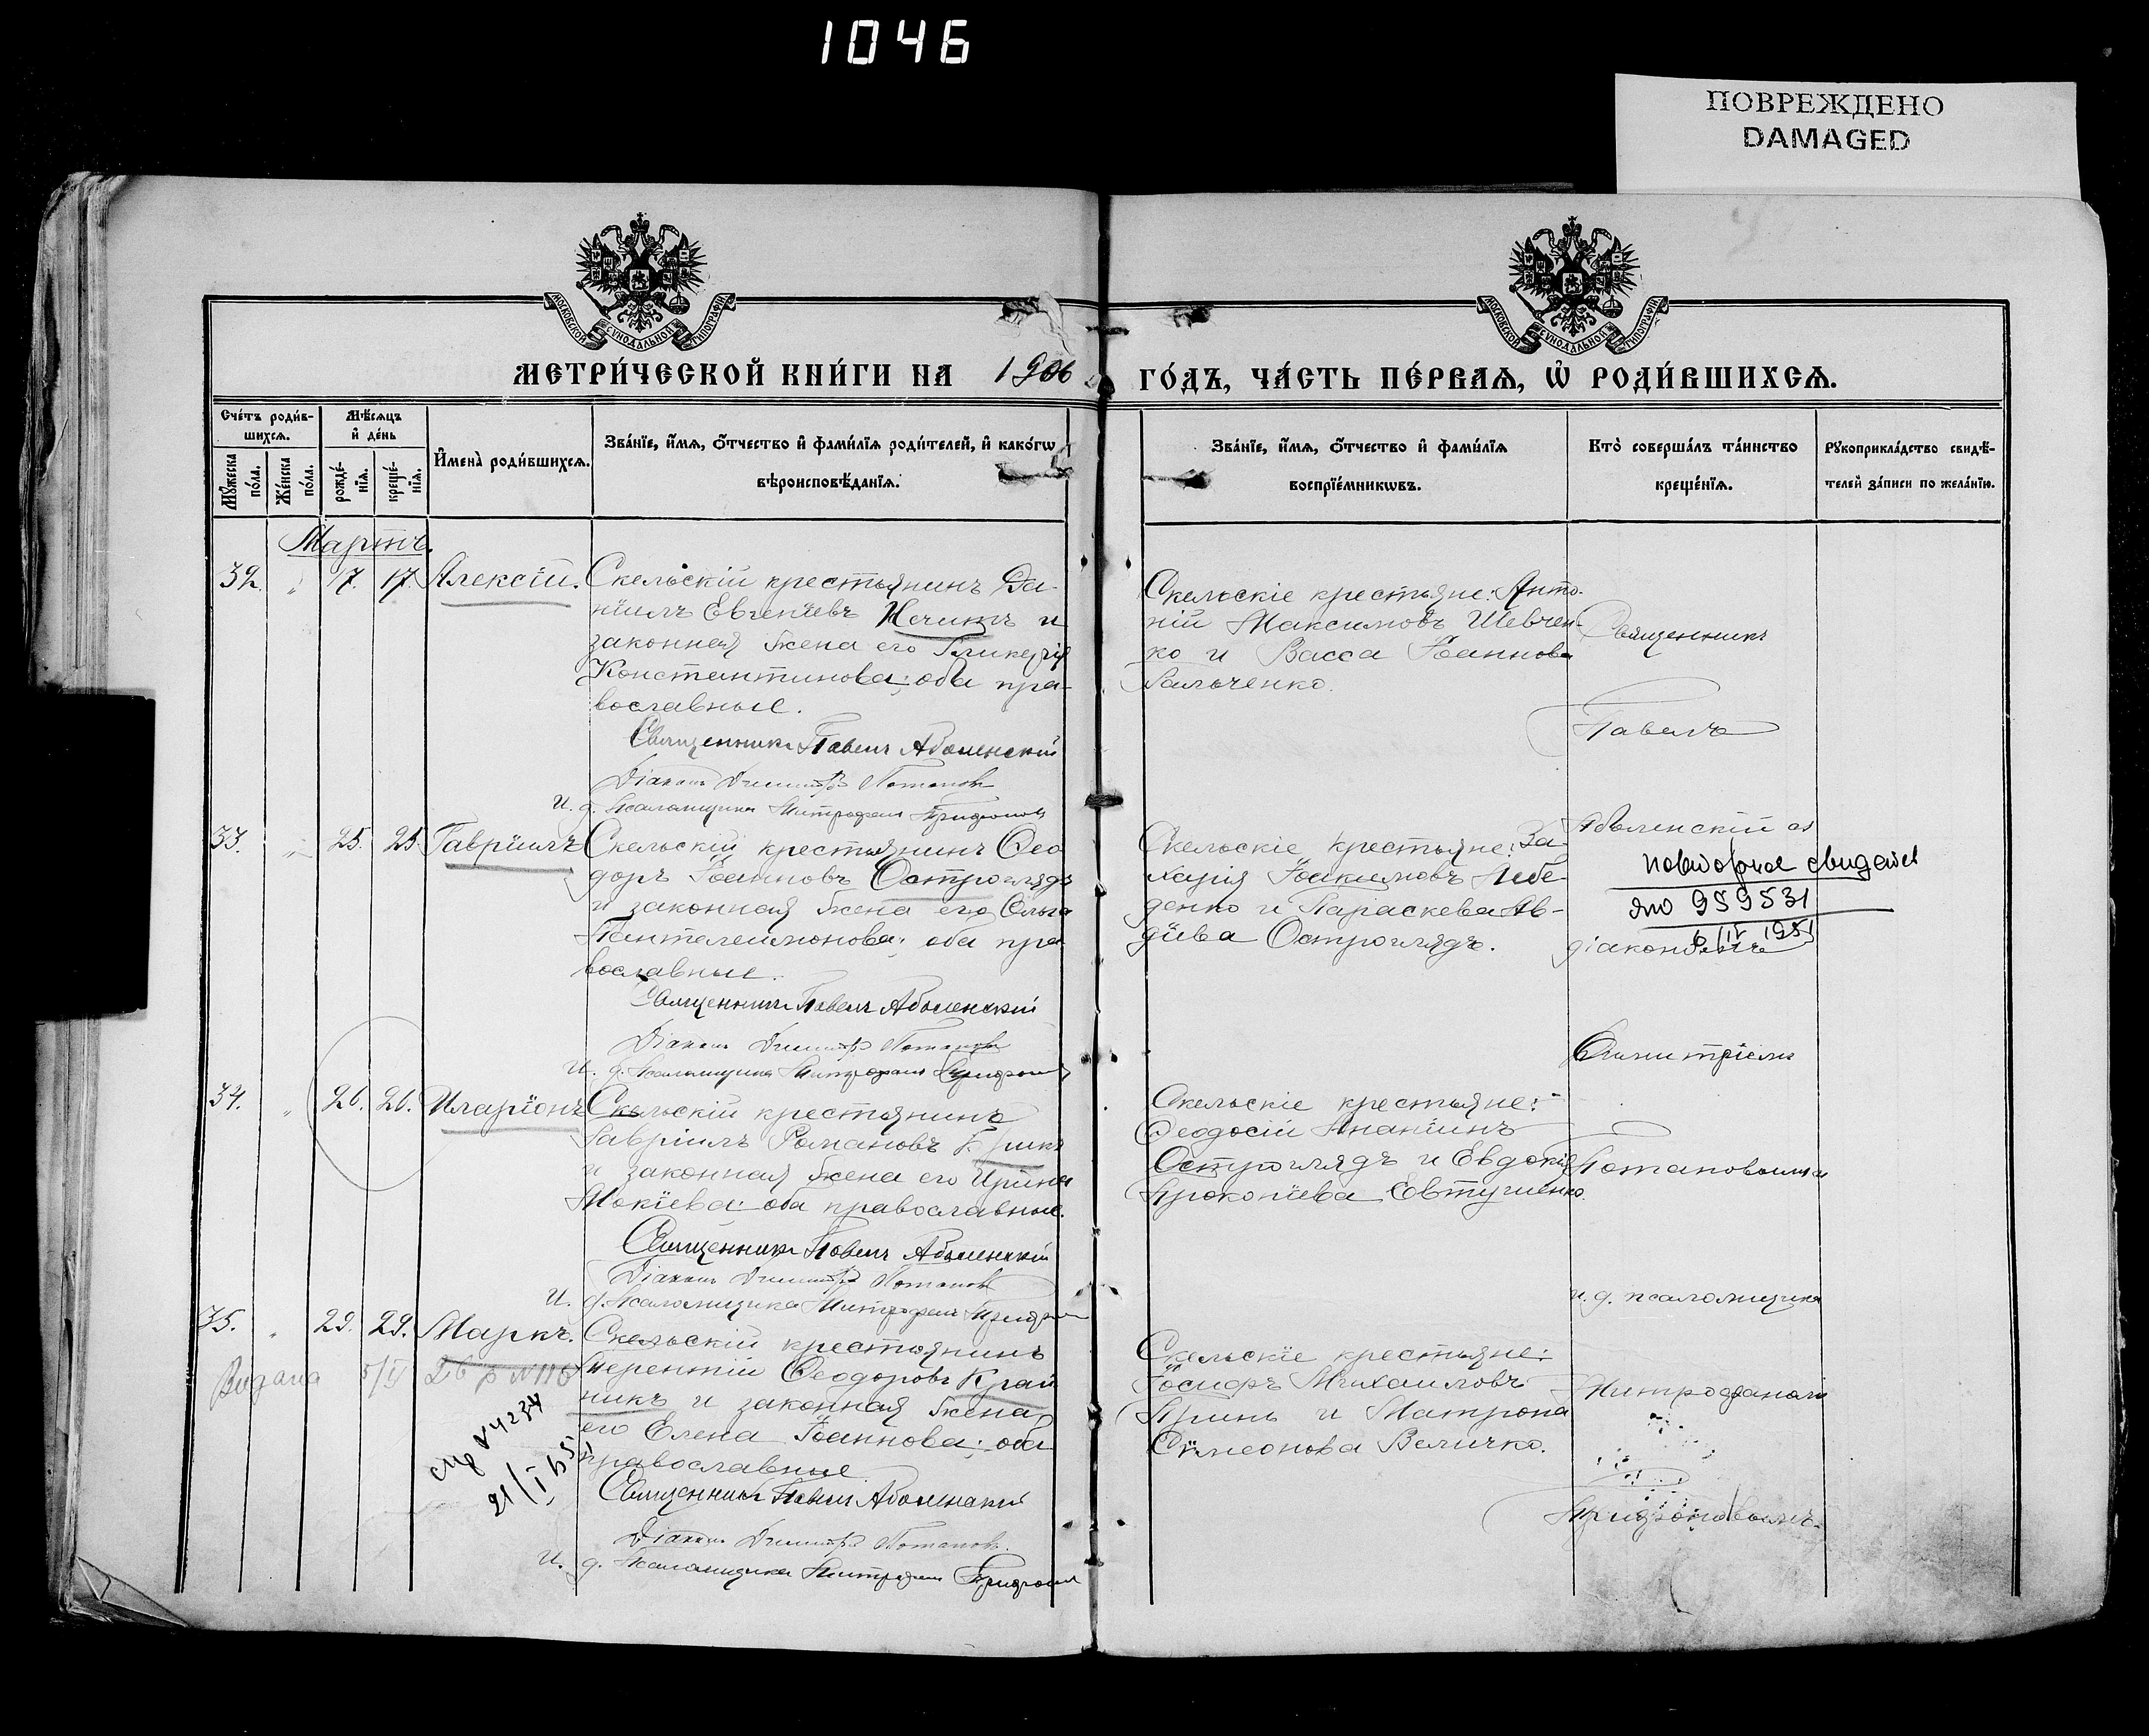 1046
ПОВРЕЖДЕНО
DAMAGED
МОСКОВСКОЙ СѴНОДАЛЬНОЙ ТИПОГРАФІИ
МОСКОВСКОЙ СѴНОДАЛЬНОЙ ТИПОГРАФІИ
МЕТРИ́ЧЕСКОЙ КНИ́ГИ НА 1906
ГО́ДЪ, ЧА́СТЬ ПЕ́РВАѦ, Ѡ҆ РОДИ́ВШИХСѦ.
Сче́тъ роди́в-
шихсѧ.
Мꙋ́жеска
по́ла.
Же́нска
по́ла.
Мѣ́сѧцъ
и҆ де́нь
рожде́-
нїѧ.
креще́-
нїѧ.
И҆мена̀ роди́вшихсѧ.
Зва́нїе, и҆́мѧ, ѻ҆́тчество и҆ фами́лїѧ роди́телей, и҆ како́гѡ
вѣроисповѣ́данїѧ.
Зва́нїе, и҆́мѧ, ѻ҆́тчество и҆ фами́лїѧ
воспрїе́мникѡвъ.
Кто̀ соверша́лъ та́инство
креще́нїѧ.
Рꙋкоприкла́дство свидѣ́-
телей за́писи по жела́нїю.
Мартъ.
32. " 17. 17. Алексій.
Скельскій крестьянинъ Да-
ніилъ Евгеніевъ и
законная жена его Гликерія
Константинова; оба пра-
вославные.
Священникъ Павелъ Аболенскій
Діаконъ Димитрій Потаповъ
И. д. псаломщика Митрофанъ
Скельскіе крестьяне: Анто-
ній Максимовъ Шевчен-
ко и Васса Іоаннова
Сальченко.
Священникъ
Павелъ
33. " 25. 25. Гавріилъ
Скельскій крестьянинъ Ѳео-
доръ Іоанновъ Остроглядъ
и законная жена его Ольга
Пантелеимонова; оба пра-
вославные.
Священникъ Павелъ Аболенскій
Діаконъ Димитрій Потаповъ
И. д. псаломщика Митрофанъ
Скельскіе крестьяне: За-
харія Іоакимовъ Лебе-
денко и Параскева Ав-
діева Остроглядъ.
Аболенскій съ
повторное свидет
ЯЮ 959531
6/IV 1951
діакономъ
Димитріемъ
34. " 26. 26. Иларіонъ
Скельскій крестьянинъ
Гавріилъ Романовъ
и законная жена его Ирина
Мокіева; оба православные.
Священникъ Павелъ Аболенскій
Діаконъ Димитрій Потаповъ
И. д. псаломщика Митрофанъ
Скельскіе крестьяне:
Ѳеодосій Ананіинъ
Остроглядъ и Евдокія
Прокопіева Евтушенко.
Потаповымъ и
и. д. псаломщика
35. " 29. 29. Маркъ.
Скельскій крестьянинъ
Терентій Ѳеодоровъ Край
никъ и законная жена
его Елена Іоаннова; оба
православные
Священникъ Павелъ Аболенскій
Діаконъ Димитрій Потаповъ.
И. д. псаломщика Митрофанъ
Скельскіе крестьяне:
Іосифъ Михаиловъ
и Матрона
Симеонова Величко.
Митрофаномъ
Видана 5/IV 26 р №116
№ 4234
21/I